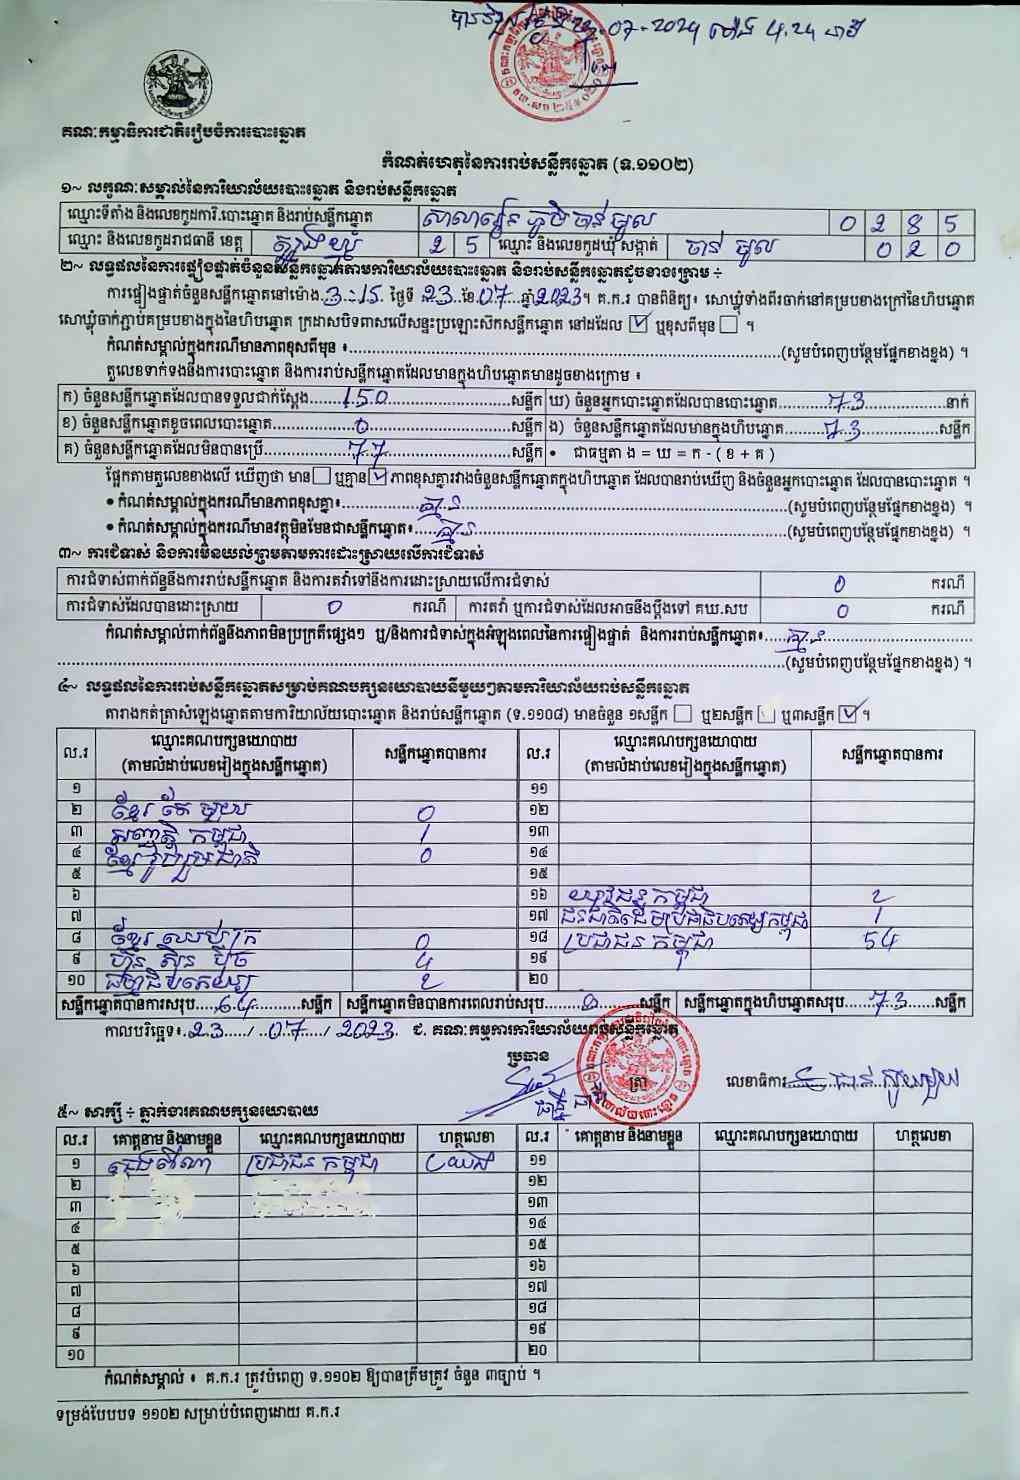 07-2024 ម៉ោង 4.24 នាទី
គណៈកម្មាធិការជាតិរៀបចំការបោះឆ្នោត
កំណត់ហេតុនៃការរាប់សន្លឹកឆ្នោត (ទ.១១០២)
១~ លក្ខណៈសម្គាល់នៃការិយាល័យបោះឆ្នោត និងរាប់សន្លឹកឆ្នោត
ឈ្មោះទីតាំង និងលេខកូដការិ.បោះឆ្នោត និងរាប់សន្លឹកឆ្នោត សាលារៀន ភូមិ ចាន់ មូល 0 2 8 5
ឈ្មោះ និងលេខកូដរាជធានី ខេត្ត ត្បូងឃ្មុំ 2 5 ឈ្មោះ និងលេខកូដឃុំ សង្កាត់ ចាន់ មូល 0 2 0
២~ លទ្ធផលនៃការផ្ទៀងផ្ទាត់ចំនួនសន្លឹកឆ្នោតតាមការិយាល័យបោះឆ្នោត និងរាប់សន្លឹកឆ្នោតដូចខាងក្រោម ÷
ការផ្ទៀងផ្ទាត់ចំនួនសន្លឹកឆ្នោតនៅម៉ោង 3:15 ថ្ងៃទី 23 ខែ 07 ឆ្នាំ 2023។ គ.ក.រ បានពិនិត្យ៖ សោឃ្លុំទាំងពីរចាក់នៅគម្របខាងក្រៅនៃហិបឆ្នោត
សោឃ្លុំចាក់ភ្ជាប់គម្របខាងក្នុងនៃហិបឆ្នោត ក្រដាសបិទពាសលើសន្ទះប្រឡោះស៊កសន្លឹកឆ្នោត នៅដដែល ☑ ឬខុសពីមុន ☐ ។
កំណត់សម្គាល់ក្នុងករណីមានភាពខុសពីមុន ៖ (សូមបំពេញបន្ថែមផ្នែកខាងខ្នង) ។
តួលេខទាក់ទងនឹងការបោះឆ្នោត និងការរាប់សន្លឹកឆ្នោតដែលមានក្នុងហិបឆ្នោតមានដូចខាងក្រោម ៖
ក) ចំនួនសន្លឹកឆ្នោតដែលបានទទួលជាក់ស្តែង 150 សន្លឹក ឃ) ចំនួនអ្នកបោះឆ្នោតដែលបានបោះឆ្នោត 73 នាក់
ខ) ចំនួនសន្លឹកឆ្នោតខូចពេលបោះឆ្នោត 0 សន្លឹក ង) ចំនួនសន្លឹកឆ្នោតដែលមានក្នុងហិបឆ្នោត 73 សន្លឹក
គ) ចំនួនសន្លឹកឆ្នោតដែលមិនបានប្រើ 77 សន្លឹក • ជាធម្មតា ង = ឃ = ក - ( ខ + គ )
ផ្អែកតាមតួលេខខាងលើ ឃើញថា មាន ☐ ឬគ្មាន ☑ ភាពខុសគ្នារវាងចំនួនសន្លឹកឆ្នោតក្នុងហិបឆ្នោត ដែលបានរាប់ឃើញ និងចំនួនអ្នកបោះឆ្នោត ដែលបានបោះឆ្នោត ។
• កំណត់សម្គាល់ក្នុងករណីមានភាពខុសគ្នា៖ គ្មាន (សូមបំពេញបន្ថែមផ្នែកខាងខ្នង) ។
• កំណត់សម្គាល់ក្នុងករណីមានវត្ថុមិនមែនជាសន្លឹកឆ្នោត៖ គ្មាន (សូមបំពេញបន្ថែមផ្នែកខាងខ្នង) ។
៣~ ការជំទាស់ និងការមិនយល់ព្រមតាមការដោះស្រាយលើការជំទាស់
ការជំទាស់ពាក់ព័ន្ធនឹងការរាប់សន្លឹកឆ្នោត និងការតវ៉ាទៅនឹងការដោះស្រាយលើការជំទាស់ 0 ករណី
ការជំទាស់ដែលបានដោះស្រាយ 0 ករណី ការតវ៉ា ឬការជំទាស់ដែលអាចនឹងប្តឹងទៅ គឃ.សប 0 ករណី
កំណត់សម្គាល់ពាក់ព័ន្ធនឹងភាពមិនប្រក្រតីផ្សេងៗ ឬ/និងការជំទាស់ក្នុងអំឡុងពេលនៃការផ្ទៀងផ្ទាត់ និងការរាប់សន្លឹកឆ្នោត៖ គ្មាន
(សូមបំពេញបន្ថែមផ្នែកខាងខ្នង) ។
៤~ លទ្ធផលនៃការរាប់សន្លឹកឆ្នោតសម្រាប់គណបក្សនយោបាយនីមួយៗតាមការិយាល័យរាប់សន្លឹកឆ្នោត
តារាងកត់ត្រាសំឡេងឆ្នោតតាមការិយាល័យបោះឆ្នោត និងរាប់សន្លឹកឆ្នោត (ទ.១១០៨) មានចំនួន ១សន្លឹក ☐ ឬ២សន្លឹក ☐ ឬ៣សន្លឹក ☑ ។
ល.រ ឈ្មោះគណបក្សនយោបាយ (តាមលំដាប់លេខរៀងក្នុងសន្លឹកឆ្នោត) សន្លឹកឆ្នោតបានការ ល.រ ឈ្មោះគណបក្សនយោបាយ (តាមលំដាប់លេខរៀងក្នុងសន្លឹកឆ្នោត) សន្លឹកឆ្នោតបានការ
១ ១១
២ ខ្មែរ តែ មួយ 0 ១២
៣ កម្ពុជា 1 ១៣
៤ ខ្មែររួបរួមជាតិ 0 ១៤
៥ ១៥
៦ ១៦ យុវជន កម្ពុជា 2
៧ ១៧ ជនជាតិដើមប្រជាធិបតេយ្យកម្ពុជា 1
៨ ខ្មែរ ឈប់ក្រ 0 ១៨ ប្រជាជន កម្ពុជា 54
៩ ហ៊្វុន ស៊ិន ប៉ិច 4 ១៩
១០ 2 ២០
សន្លឹកឆ្នោតបានការសរុប 64 សន្លឹក សន្លឹកឆ្នោតមិនបានការពេលរាប់សរុប សន្លឹក សន្លឹកឆ្នោតក្នុងហិបឆ្នោតសរុប 73 សន្លឹក
កាលបរិច្ឆេទ៖ 23 / 07 / 2023 ជ. គណៈកម្មការការិយាល័យរាប់សន្លឹកឆ្នោត
ប្រធាន ត្រា លេខាធិការ
៥~ សាក្សី ÷ ភ្នាក់ងារគណបក្សនយោបាយ
ល.រ គោត្តនាម និងនាមខ្លួន ឈ្មោះគណបក្សនយោបាយ ហត្ថលេខា ល.រ គោត្តនាម និងនាមខ្លួន ឈ្មោះគណបក្សនយោបាយ ហត្ថលេខា
១ ប្រជាជន កម្ពុជា ១១
២ ១២
៣ ១៣
៤ ១៤
៥ ១៥
៦ ១៦
៧ ១៧
៨ ១៨
៩ ១៩
១០ ២០
កំណត់សម្គាល់ ៖ គ.ក.រ ត្រូវបំពេញ ទ.១១០២ ឱ្យបានត្រឹមត្រូវ ចំនួន ៣ច្បាប់ ។
ទម្រង់បែបបទ ១១០២ សម្រាប់បំពេញដោយ គ.ក.រ